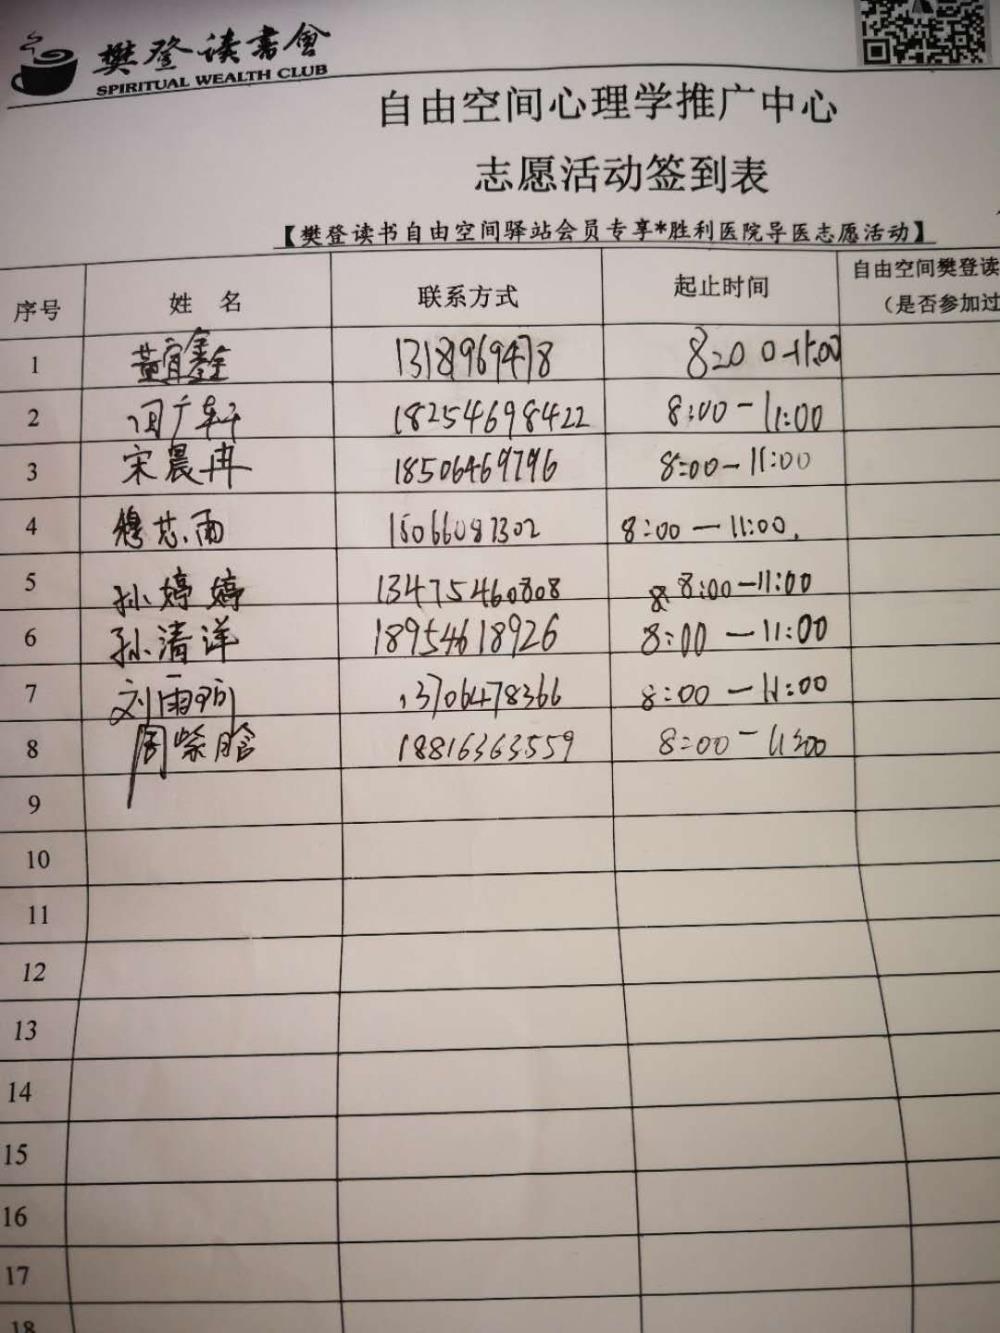 樊登读书会
SPIRITUAL WEALTH CLUB
自由空间心理学推广中心
志愿活动签到表
【樊登读书自由空间驿站会员专享*胜利医院导医志愿活动】
序号 姓 名 联系方式 起止时间 自由空间樊登读
（是否参加过
1 黄宜鑫 13181969478 8:00-11:00
2 闫广轩 18254698422 8:00-11:00
3 宋晨冉 18506469796 8:00-11:00
4 穆芯雨 15066087302 8:00-11:00.
5 孙婷婷 13475460808 8:00-11:00
6 孙清洋 18954618926 8:00-11:00
7 刘雨 13706478366 8:00-11:00
8 周紫晗 18816363559 8:00-11:00
9
10
11
12
13
14
15
16
17
18